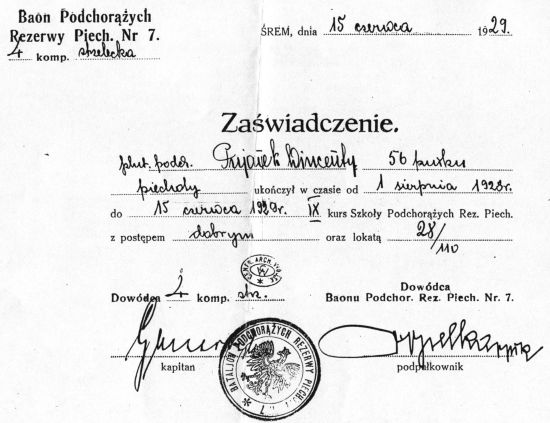 Baon Podchorążych
Rezerwy Piech. Nr 7.
4 komp. strzelecka
ŚREM, dnia 15 czerwca 1929.
Zaświadczenie.
plut. podch. Wincenty 56 pułku
piechoty ukończył w czasie od 1 sierpnia 1928r.
do 15 czerwca 1929r. IX kurs Szkoły Podchorążych Rez. Piech.
z postępem dobrym oraz lokatą 28/110
Dowódca komp. strz.
Dowódca
Baonu Podchor. Rez. Piech. Nr 7.
kapitan
podpułkownik
BATALJON PODCHORĄŻYCH REZERWY PIECH. 7